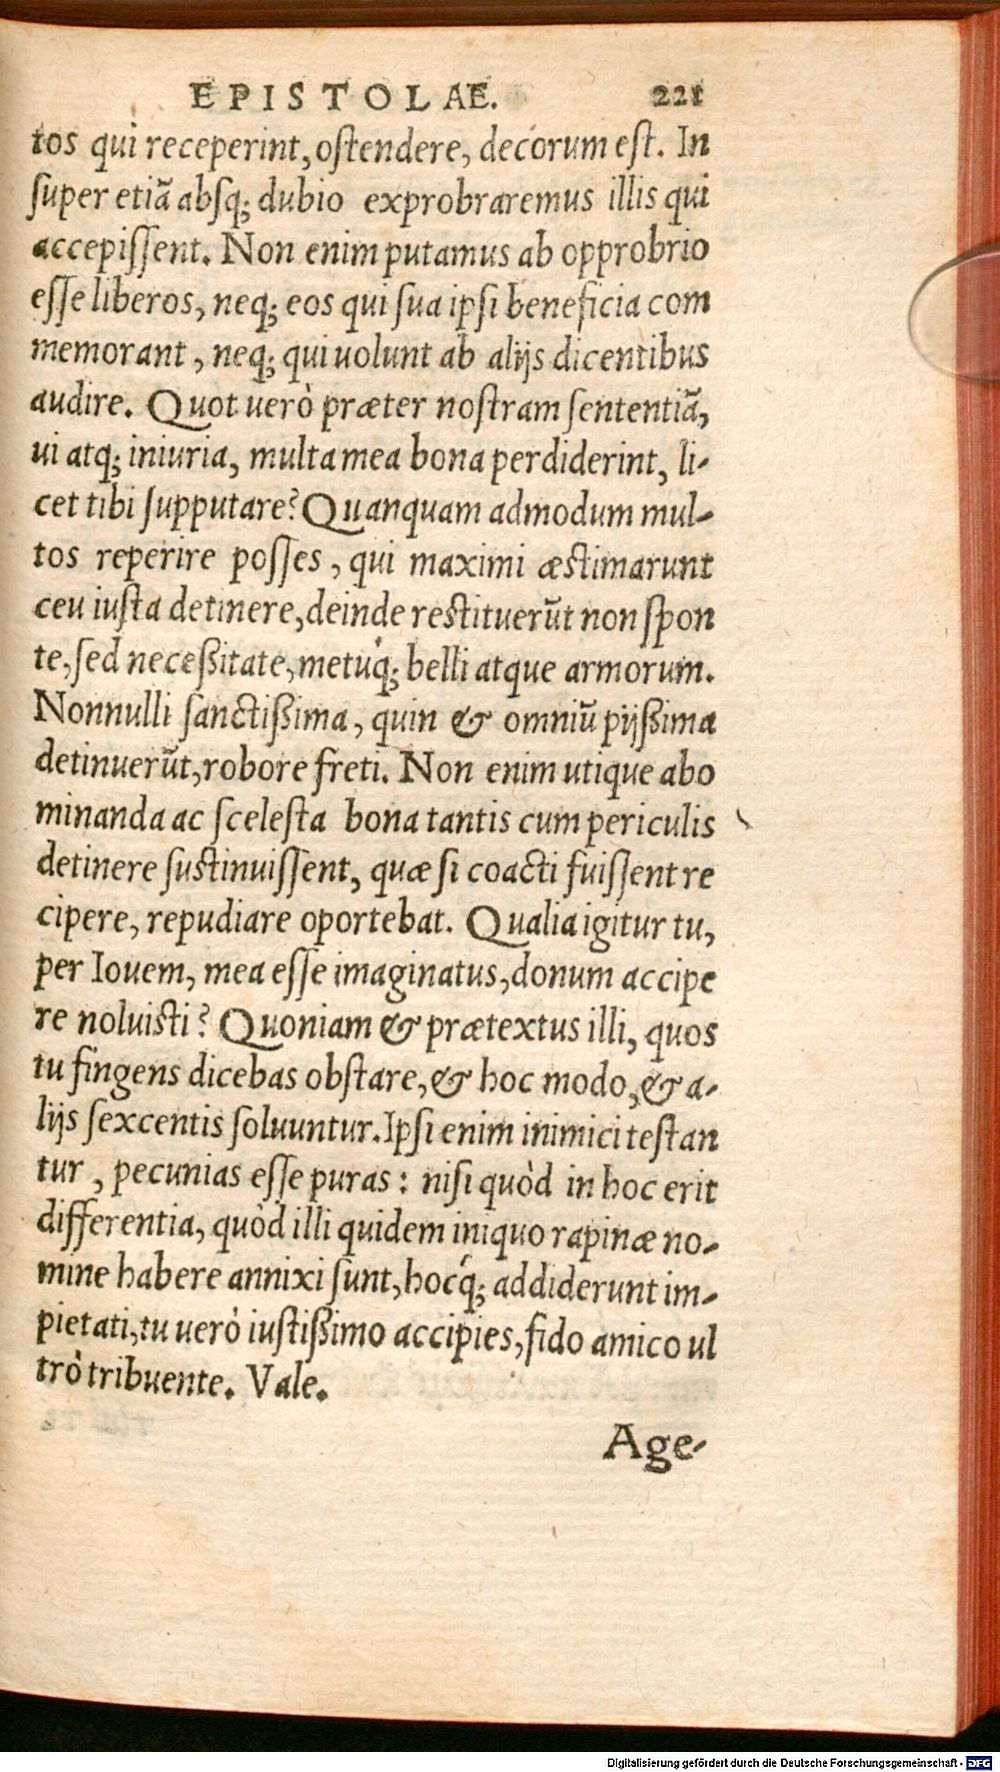 EPISTOLAE. 221
tos qui receperint, ostendere, decorum est. In
super etiã absq; dubio exprobraremus illis qui
accepissent. Non enim putamus ab opprobrio
esse liberos, neq; eos qui sua ipsi beneficia com
memorant, neq; qui uolunt ab alijs dicentibus
audire. Quot uerò præter nostram sententiã,
ui atq; iniuria, multa mea bona perdiderint, li-
cet tibi supputare? Quanquam admodum mul-
tos reperire posses, qui maximi æstimarunt
ceu iusta detinere, deinde restituerũt non spon
te, sed neceßitate, metuq́; belli atque armorum.
Nonnulli sanctißima, quin & omniũ pijßima
detinuerũt, robore freti. Non enim utique abo
minanda ac scelesta bona tantis cum periculis
detinere sustinuissent, quæ si coacti fuissent re
cipere, repudiare oportebat. Qualia igitur tu,
per Iouem, mea esse imaginatus, donum accipe
re noluisti? Quoniam & prætextus illi, quos
tu fingens dicebas obstare, & hoc modo, & a-
lijs sexcentis soluuntur. Ipsi enim inimici testan
tur, pecunias esse puras: nisi quòd in hoc erit
differentia, quòd illi quidem iniquo rapinæ no-
mine habere annixi sunt, hocq́; addiderunt im-
pietati, tu uerò iustißimo accipies, fido amico ul
trò tribuente. Vale.
Age-
Digitalisierung gefördert durch die Deutsche Forschungsgemeinschaft - DFG